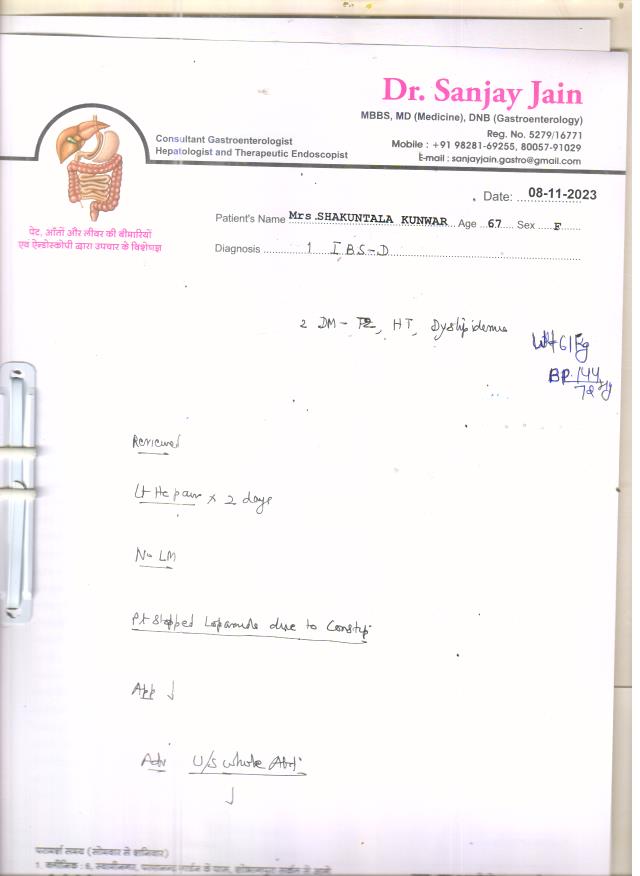 Dr. Sanjay Jain
MBBS, MD (Medicine), DNB (Gastroenterology)
Reg. No. 5279/16771
Mobile : +91 98281-69255, 80057-91029
E-mail : sanjayjain.gastro@gmail.com
Consultant Gastroenterologist
Hepatologist and Therapeutic Endoscopist
पेट, आँतों और लीवर की बीमारियों
एवं ऐन्डोस्कोपी द्वारा उपचार के विशेषज्ञ
Date: 08-11-2023
Patient's Name Mrs.SHAKUNTALA KUNWAR Age 67 Sex F
Diagnosis 1 IBS-D
2 DM - T2, HT, Dyslipidemia
Wt 61 Kg
BP. 144
72
Reviewed
Lt Hc pain x 2 days
No LM
Pt stopped Loparamide due to Constip
App ↓
Adv U/S whole Abd
↓
परामर्श समय (सोमवार से शनिवार)
1. क्लीनिक : 6,